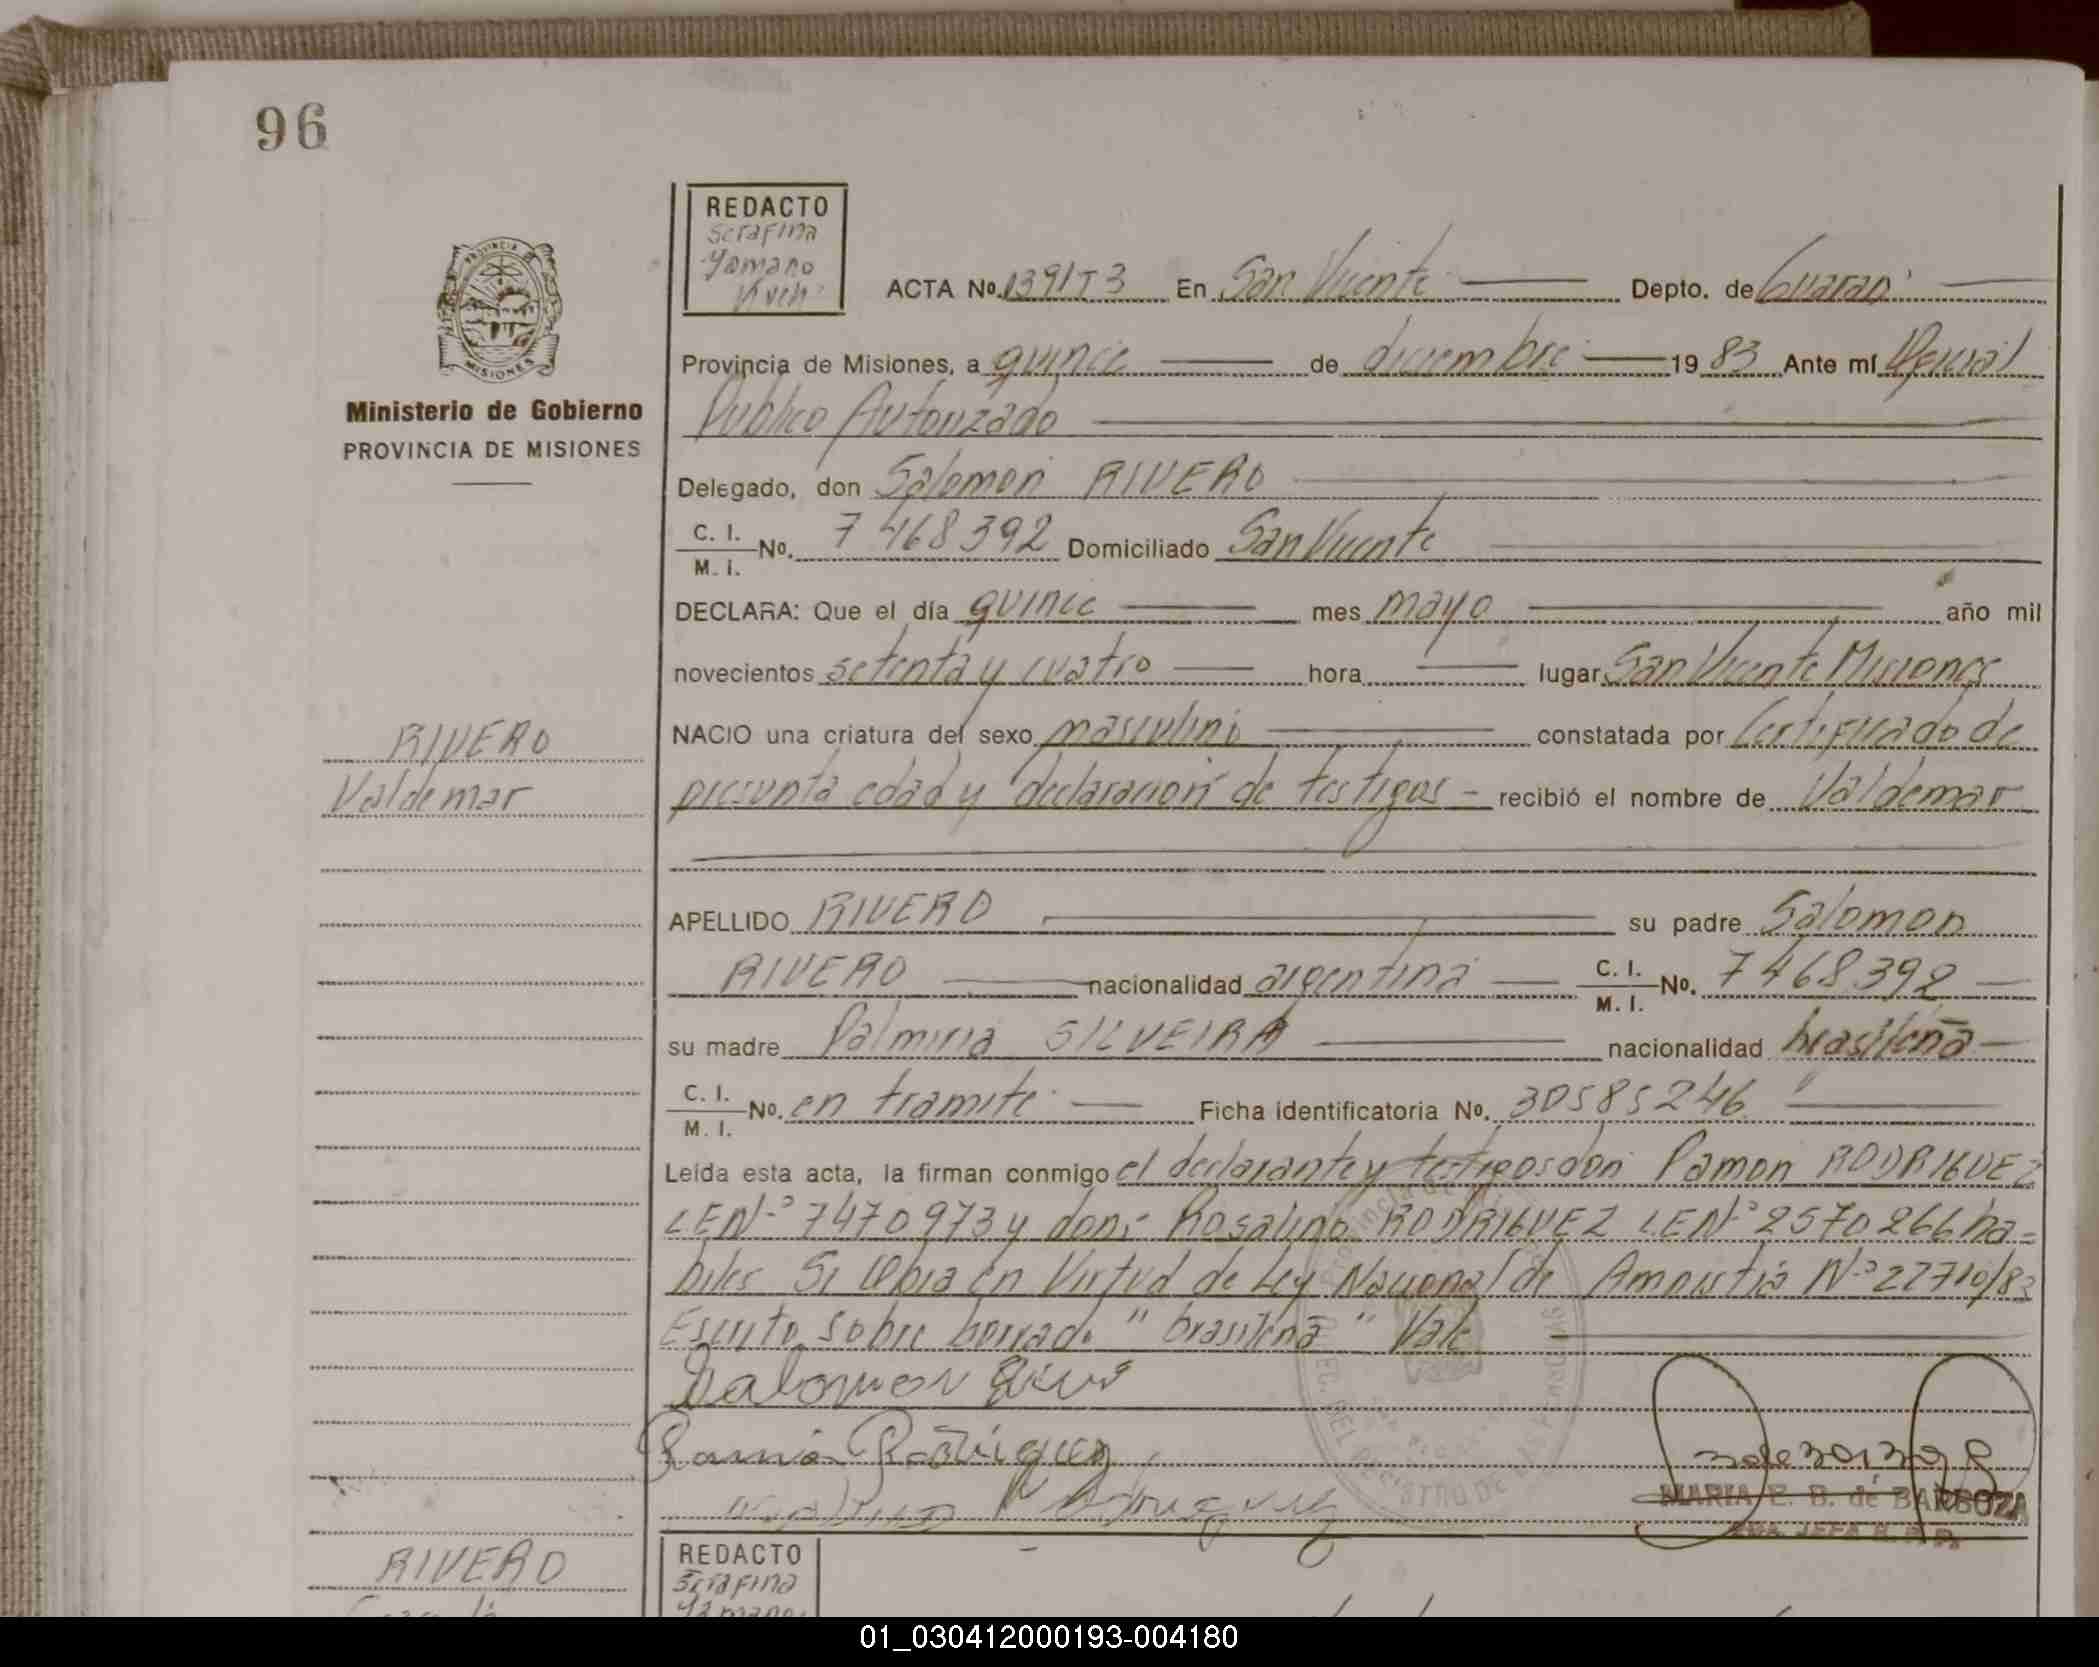 96
REDACTO
Serafina
ACTA No. 1391T3 En San Vicente Depto. de Guaraní
Provincia de Misiones, a quince de diciembre 1983 Ante mí Oficial
Publico Autorizado
PROVINCIA DE
MISIONES
Ministerio de Gobierno
PROVINCIA DE MISIONES
Delegado, don Salomon RIVERO
C. I.
M. I. No. 7468392 Domiciliado San Vicente
DECLARA: Que el día quince mes mayo año mil
novecientos setenta y cuatro hora lugar San Vicente Misiones
RIVERO
Valdemar
NACIO una criatura del sexo masculino constatada por Certificado de
presunta edad y declaracion de testigos - recibió el nombre de Valdemar
APELLIDO RIVERO su padre Salomon
RIVERO nacionalidad argentina C. I.
M. I. No. 7468392
su madre Palmiria SILVEIRA nacionalidad brasileña
C. I.
M. I. No. en tramite Ficha identificatoria No. 30585246
Leída esta acta, la firman conmigo el declarante y testigos don Ramon RODRIGUEZ
LENº 7470973 y don: Rosalino RODRIGUEZ LENº 2570266 ha=
biles Se labra en Virtud de Ley Nacional de Amnistia Nº 22710/83
Escrito sobre borrado "brasileña" Vale
Ramon Rodriguez
Rodriguez
MARIA E. B. de BARBOZA
RIVERO
REDACTO
Serafina
01_030412000193-004180